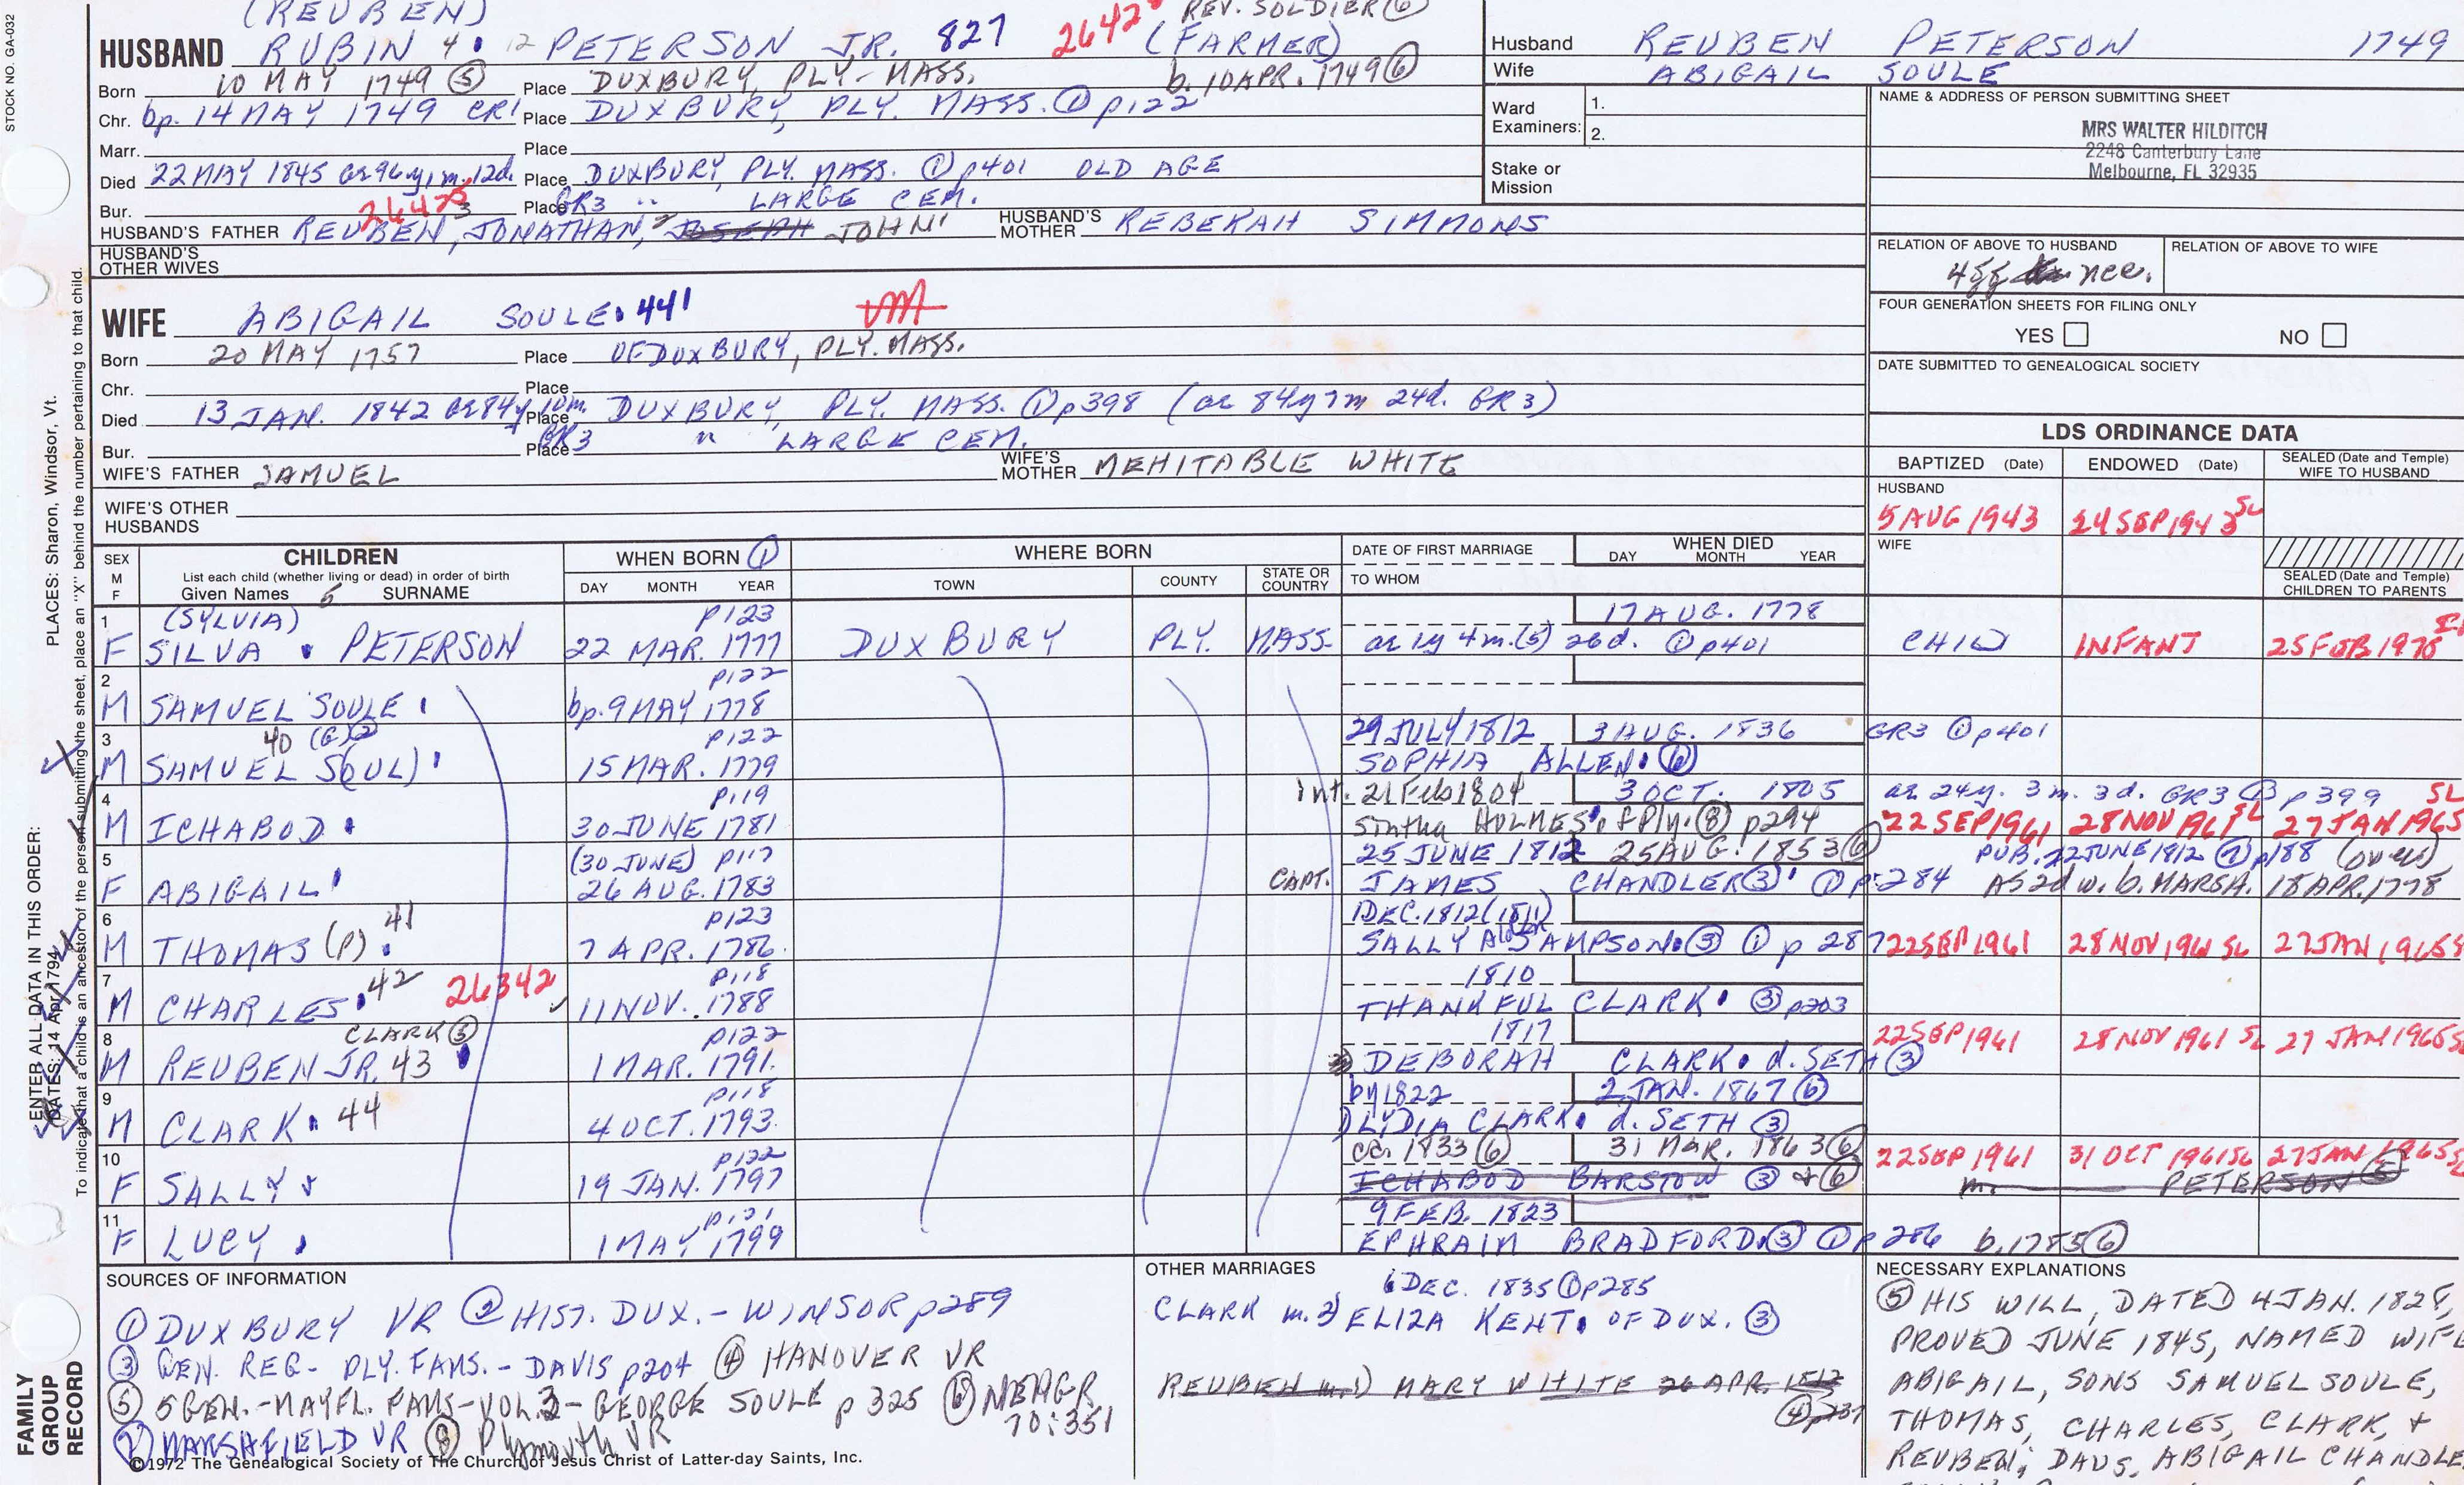 (REUBEN) REV. SOLDIER (6)
HUSBAND RUBIN 4 12 PETERSON JR. 827 2642 (FARMER)
Born 10 MAY 1749 (5) Place DUXBURY, PLY-MASS. b. 10 APR. 1749 (6)
Chr. bp. 14 MAY 1749 CR1 Place DUXBURY, PLY. MASS. (1) p122
Marr. Place
Died 22 MAY 1845 ae 96y 1m. 12d. Place DUXBURY, PLY. MASS. (1) p401 OLD AGE
Bur. 26425 Place GR3 " LARGE CEM.
HUSBAND'S FATHER REUBEN, JONATHAN, JOSEPH JOHN HUSBAND'S MOTHER REBEKAH SIMMONS
HUSBAND'S OTHER WIVES
WIFE ABIGAIL SOULE 441
Born 20 MAY 1757 Place OF DUXBURY, PLY. MASS.
Chr. Place
Died 13 JAN. 1842 ae 84y 10m. Place DUXBURY, PLY. MASS. (1) p398 (ae 84y 7m 24d. GR3)
Bur. Place GR3 " LARGE CEM.
WIFE'S FATHER SAMUEL WIFE'S MOTHER MEHITABLE WHITE
WIFE'S OTHER HUSBANDS
Husband REUBEN PETERSON 1749
Wife ABIGAIL SOULE
Ward Examiners: 1. 2.
Stake or Mission
NAME & ADDRESS OF PERSON SUBMITTING SHEET
MRS WALTER HILDITCH
2248 Canterbury Lane
Melbourne, FL 32935
RELATION OF ABOVE TO HUSBAND RELATION OF ABOVE TO WIFE
nce.
FOUR GENERATION SHEETS FOR FILING ONLY
YES NO
DATE SUBMITTED TO GENEALOGICAL SOCIETY
LDS ORDINANCE DATA
BAPTIZED (Date) ENDOWED (Date) SEALED (Date and Temple) WIFE TO HUSBAND
HUSBAND
5 AUG 1943 24 SEP 1943 SL
WIFE
SEALED (Date and Temple) CHILDREN TO PARENTS
SEX M F CHILDREN List each child (whether living or dead) in order of birth Given Names SURNAME
WHEN BORN (1) DAY MONTH YEAR
WHERE BORN TOWN COUNTY STATE OR COUNTRY
DATE OF FIRST MARRIAGE TO WHOM WHEN DIED DAY MONTH YEAR
1 (SYLVIA) p123 17 AUG. 1778
F SILVA PETERSON 22 MAR. 1777 DUXBURY PLY. MASS. ae 1y 4m. (5) 26d. (1) p401 CHILD INFANT 25 FEB 1970
2 p122
M SAMUEL SOULE bp. 9 MAY 1778
3 40 (6)(2) p122 29 JULY 1812 3 AUG. 1836 GR3 (1) p401
M SAMUEL S(OUL) 15 MAR. 1779 SOPHIA ALLEN (6)
4 p119 Int. 21 Feb 1804 3 OCT. 1805 ae 24y. 3m. 3d. GR3 (1) p399 SL
M ICHABOD 30 JUNE 1781 Sintha HOLMES of Ply. (8) p294 22 SEP 1961 28 NOV 1961 SL 27 JAN 1965
5 (30 JUNE) p117 25 JUNE 1812 25 AUG. 1853 (6) PUB. 22 JUNE 1812 (7) p188 (over)
F ABIGAIL 26 AUG. 1783 CAPT. JAMES CHANDLER (3) (1) p.284 AS 2d w. b. MARSH. 18 APR. 1778
6 41 p123 1 DEC. 1812 (1811)
M THOMAS (P) 7 APR. 1786 SALLY Alden SAMPSON (3) (1) p 287 22 SEP 1961 28 NOV 1961 SL 27 JAN 1965 S
7 42 26342 p118 1810
M CHARLES 11 NOV. 1788 THANKFUL CLARK (3) p203
8 CLARK (3) p122 1817
M REUBEN JR. 43 1 MAR. 1791 DEBORAH CLARK d. SETH (3) 22 SEP 1961 28 NOV 1961 SL 27 JAN 1965 S
9 p118 by 1822 2 JAN. 1867 (6)
M CLARK 44 4 OCT. 1793 1) LYDIA CLARK d. SETH (3)
10 p122 ca. 1833 (6) 31 MAR. 1863 (6)
F SALLY 19 JAN. 1797 ICHABOD BARSTOW (3) + (6) 22 SEP 1961 31 OCT 1961 SL 27 JAN 1965 S
m. PETERSON (5)
11 p121 9 FEB. 1823
F LUCY 1 MAY 1799 EPHRAIM BRADFORD (3) (1) p 286 b. 1785 (6)
SOURCES OF INFORMATION
(1) DUXBURY VR (2) HIST. DUX. - WINSOR p289
(3) GEN. REG - PLY. FAMS. - DAVIS p204 (4) HANOVER VR
(5) 5 GEN. - MAYFL. FAMS - VOL. 3 - GEORGE SOULE p 325 (6) NEHGR 70:351
(7) MARSHFIELD VR (8) Plymouth VR
©1972 The Genealogical Society of The Church of Jesus Christ of Latter-day Saints, Inc.
OTHER MARRIAGES
6 DEC. 1835 (1) p285
CLARK m. 2) ELIZA KENT OF DUX. (3)
REUBEN m. 1) MARY WHITE 26 APR. 1812
(4) p237
NECESSARY EXPLANATIONS
(5) HIS WILL, DATED 4 JAN. 1828,
PROVED JUNE 1845, NAMED WIFE
ABIGAIL, SONS SAMUEL SOULE,
THOMAS, CHARLES, CLARK, +
REUBEN; DAUS. ABIGAIL CHANDLE
STOCK NO. GA-032
PLACES: Sharon, Windsor, Vt.
ENTER ALL DATA IN THIS ORDER:
DATES: 14 Apr 1794
To indicate that a child is an ancestor of the person submitting the sheet, place an "X" behind the number pertaining to that child.
FAMILY GROUP RECORD